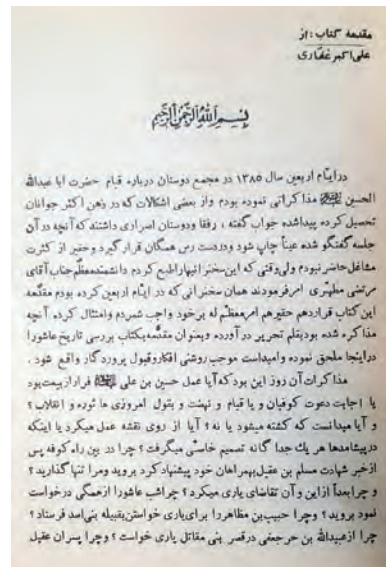 مقدمه کتاب : از
علی‌اکبر غفاری
بسم الله الرحمن الرحیم
در ایام اربعین سال ۱۳۸۵ در مجمع دوستان درباره قیام حضرت ابا عبدالله
الحسین علیه‌السلام مذاکراتی نموده بودم واز بعضی اشکالات که در ذهن اکثر جوانان
تحصیل کرده پیداشده جواب گفته ، رفقا ودوستان اصراری داشتند که آنچه در آن
جلسه گفتگو شده عیناً چاپ شود ودردست رس همگان قرار گیرد وحقیر از کثرت
مشاغل حاضر نبودم ولی وقتی که این سخنرانیها را طبع کردم دانشمند معظم جناب آقای
مرتضی مطهری امر فرمودند همان سخنرانی که در ایام اربعین کرده بودم مقدمه
این کتاب قرار دهم حقیر هم امر معظم له بر خود واجب شمردم وامتثال کرده آنچه
مذاکره شده بود بقلم تحریر در آورده وبعنوان مقدمه بکتاب بررسی تاریخ عاشورا
در اینجا ملحق نموده وامید است موجب روشنی افکار وقبول پروردگار واقع شود .
مذاکرات آن روز این بود که آیا عمل حسین بن علی علیه‌السلام فرار از بیعت بود
یا اجابت دعوت کوفیان و یا قیام و نهضت و بقول امروزی ها ثوره و انقلاب ؟
و آیا میدانست که کشته میشود یا نه ؟ آیا از روی نقشه عمل میکرد یا اینکه
در پیشامدها هر یك جدا گانه تصمیم خاصی میگرفت ؟ چرا در بین راه کوفه پس
از خبر شهادت مسلم بن عقیل بهمراهان خود پیشنهاد کرد بروید ومرا تنها گذارید ؟
و چرا بعداً از این و آن تقاضای یاری میکرد ؟ چرا شب عاشورا از همگی درخواست
نمود بروید ؟ وچرا حبیب بن مظاهر را برای یاری خواستن بقبیله بنی اسد فرستاد ؟
چرا از عبیدالله بن حر جعفی در قصر بنی مقاتل یاری خواست ؟ وچرا پسران عقیل